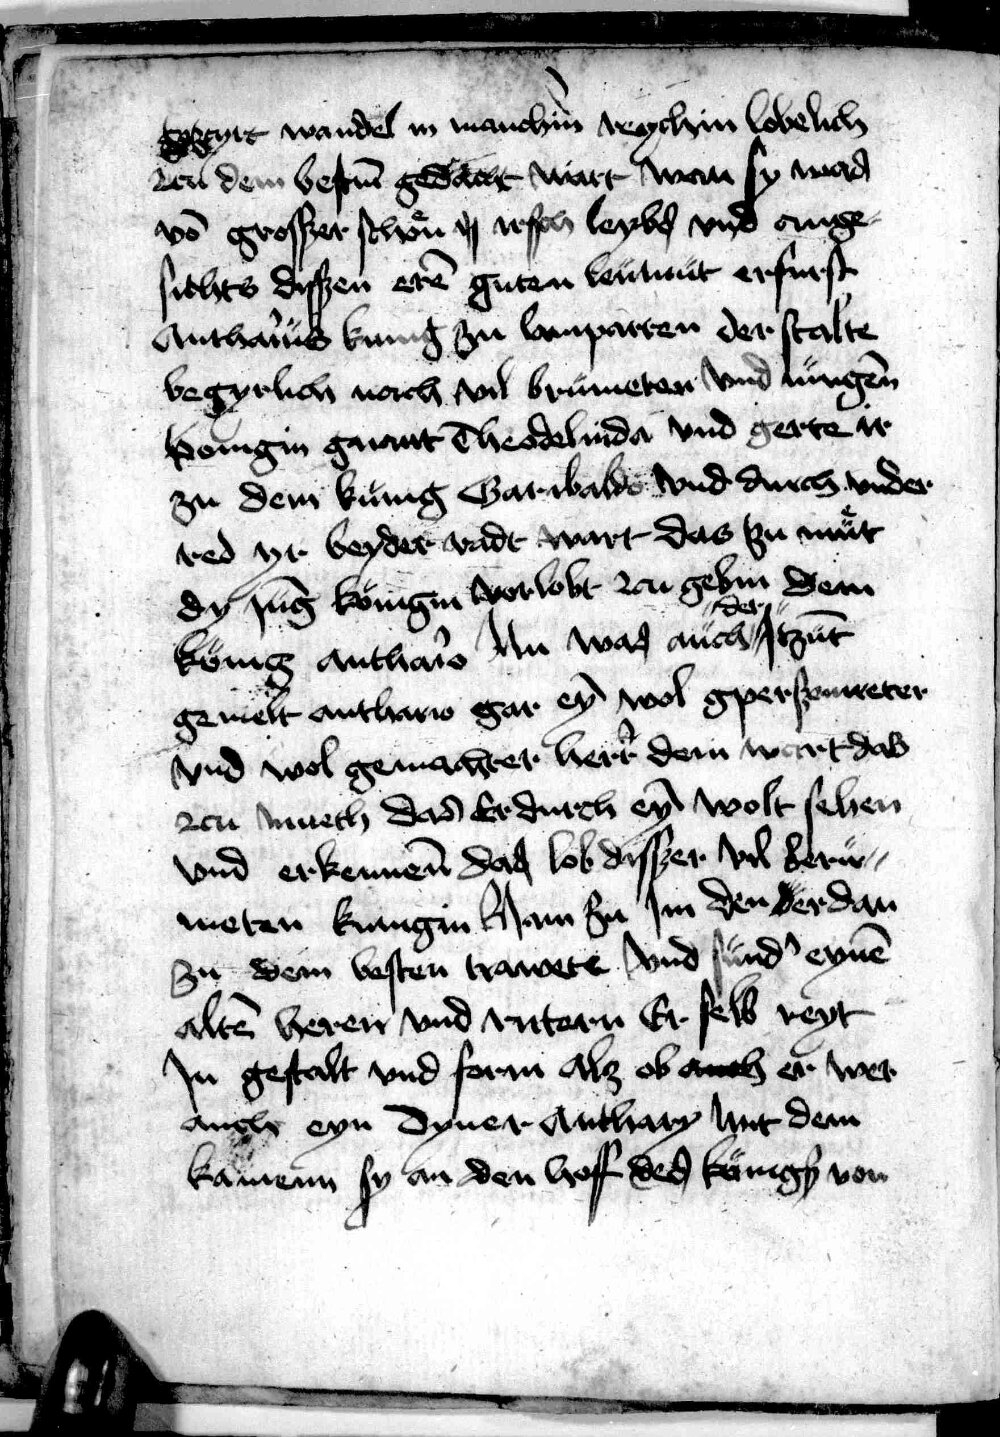 wandel in manchim reychin lobelich
zcu dem bestin gedacht wart wan sy was
vō grosszer schön leybs vnd ange-
sichts disszen erē guten leumut erfurst
Antharius kung zu lamparten der stalte
begyrlich noch vil brumeten vnd iungen
konigin gnant Theodelinda vnd gerte ir
zu dem kunig Garibaldo vnd durch vnder
red yr beyder radt wart das zu mut
dy Jung königin verlobt zcu gebin dem
könig anthario Nu was auch der Itzūt
gemelt anthario gar eyn wol gperszonireter
vnd wol gemachter herr dem wart das
zcu mueth das Er durch eyn wolt sehen
vnd erkennen das lob disszer vil beru-
meten kungin Nam zu Im den er dan
zu dem besten trawete vnd eynē
alten heren vnd rittern Er selb reyt
In gestalt vnd form als ob auch er wer
auch eyn dyner Anthary Mit dem
kamenn sy an den hoff des königs von